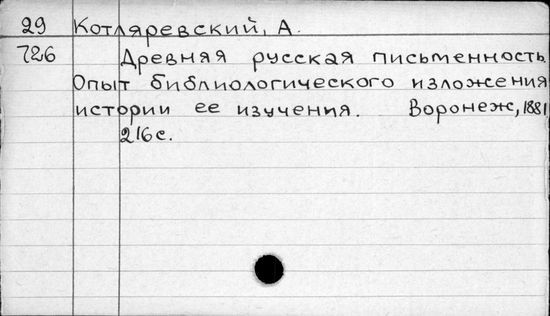 29 Котляревский, А.
726 Древняя русская письменность.
Опыт библиологического изложения
истории ее изучения. Воронеж, 1881
216 с.